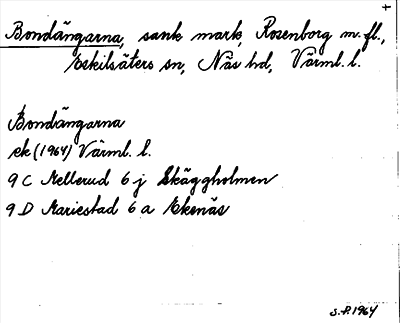 +
Bondängarna, sank mark, Rosenborg m. fl.,
Eskilsäters sn, Näs hd, Värml. l.
Bondängarna
ek (1964) Värml. l.
9 C Mellerud 6 j Skäggholmen
9 D Mariestad 6 a Ekenäs
S.P. 1964